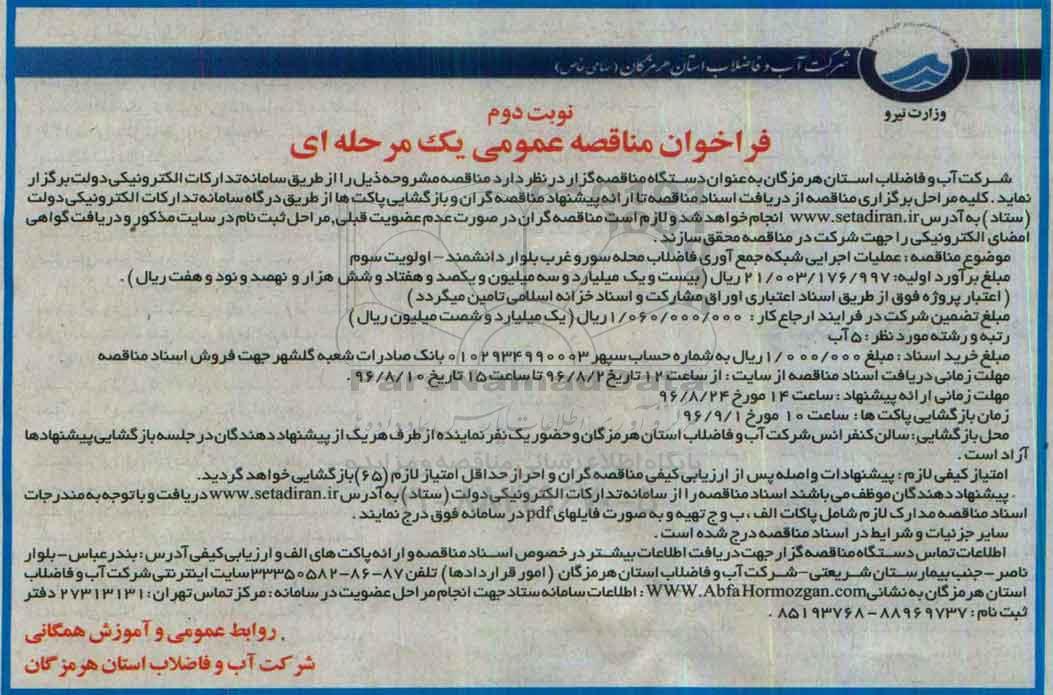 شرکت آب و فاضلاب استان هرمزگان (سهامی خاص)
وزارت نیرو
نوبت دوم
فراخوان مناقصه عمومی یک مرحله ای
شرکت آب و فاضلاب استان هرمزگان به عنوان دستگاه مناقصه گزار در نظر دارد مناقصه مشروحه ذیل را از طریق سامانه تدارکات الکترونیکی دولت برگزار
نماید. کلیه مراحل برگزاری مناقصه از دریافت اسناد مناقصه تا ارائه پیشنهاد مناقصه گران و بازگشایی پاکت ها از طریق درگاه سامانه تدارکات الکترونیکی دولت
(ستاد) به آدرس www.setadiran.ir انجام خواهد شد و لازم است مناقصه گران در صورت عدم عضویت قبلی, مراحل ثبت نام در سایت مذکور و دریافت گواهی
امضای الکترونیکی را جهت شرکت در مناقصه محقق سازند.
موضوع مناقصه: عملیات اجرایی شبکه جمع آوری فاضلاب محله سورو غرب بلوار دانشمند - اولویت سوم
مبلغ برآورد اولیه: ۲۱/۰۰۳/۱۷۶/۹۹۷ ریال (بیست و یک میلیارد و سه میلیون و یکصد و هفتاد و شش هزار و نهصد و نود و هفت ریال).
(اعتبار پروژه فوق از طریق اسناد اعتباری اوراق مشارکت و اسناد خزانه اسلامی تامین میگردد)
مبلغ تضمین شرکت در فرایند ارجاع کار: ۱/۰۶۰/۰۰۰/۰۰۰ ریال (یک میلیارد و شصت میلیون ریال)
رتبه و رشته مورد نظر: ۵ آب
مبلغ خرید اسناد: مبلغ ۱/۰۰۰/۰۰۰ ریال به شماره حساب سپهر ۰۱۰۲۹۳۴۹۹۰۰۰۳ بانک صادرات شعبه گلشهر جهت فروش اسناد مناقصه
مهلت زمانی دریافت اسناد مناقصه از سایت: از ساعت ۱۲ تاریخ ۹۶/۸/۲ تا ساعت ۱۵ تاریخ ۹۶/۸/۱۰.
مهلت زمانی ارائه پیشنهاد: ساعت ۱۴ مورخ ۹۶/۸/۲۴
زمان بازگشایی پاکت ها: ساعت ۱۰ مورخ ۹۶/۹/۱
محل بازگشایی: سالن کنفرانس شرکت آب و فاضلاب استان هرمزگان و حضور یک نفر نماینده از طرف هر یک از پیشنهاد دهندگان در جلسه بازگشایی پیشنهادها
آزاد است.
امتیاز کیفی لازم: پیشنهادات واصله پس از ارزیابی کیفی مناقصه گران و احراز حداقل امتیاز لازم (۶۵) بازگشایی خواهد گردید.
. پیشنهاد دهندگان موظف می باشند اسناد مناقصه را از سامانه تدارکات الکترونیکی دولت (ستاد) به آدرس www.setadiran.ir دریافت و با توجه به مندرجات
اسناد مناقصه مدارک لازم شامل پاکات الف، ب و ج تهیه و به صورت فایلهای pdf در سامانه فوق درج نمایند.
سایر جزئیات و شرایط در اسناد مناقصه درج شده است.
اطلاعات تماس دستگاه مناقصه گزار جهت دریافت اطلاعات بیشتر در خصوص اسناد مناقصه و ارائه پاکت های الف و ارزیابی کیفی آدرس: بندرعباس - بلوار
ناصر - جنب بیمارستان شریعتی - شرکت آب و فاضلاب استان هرمزگان (امور قراردادها) تلفن ۸۷-۸۶-۳۳۳۵۰۵۸۲ سایت اینترنتی شرکت آب و فاضلاب
استان هرمزگان به نشانی WWW.AbfaHormozgan.com: اطلاعات سامانه ستاد جهت انجام مراحل عضویت در سامانه: مرکز تماس تهران: ۲۷۳۱۳۱۳۱ دفتر
ثبت نام: ۸۸۹۶۹۷۳۷ - ۸۵۱۹۳۷۶۸.
روابط عمومی و آموزش همگانی
شرکت آب و فاضلاب استان هرمزگان